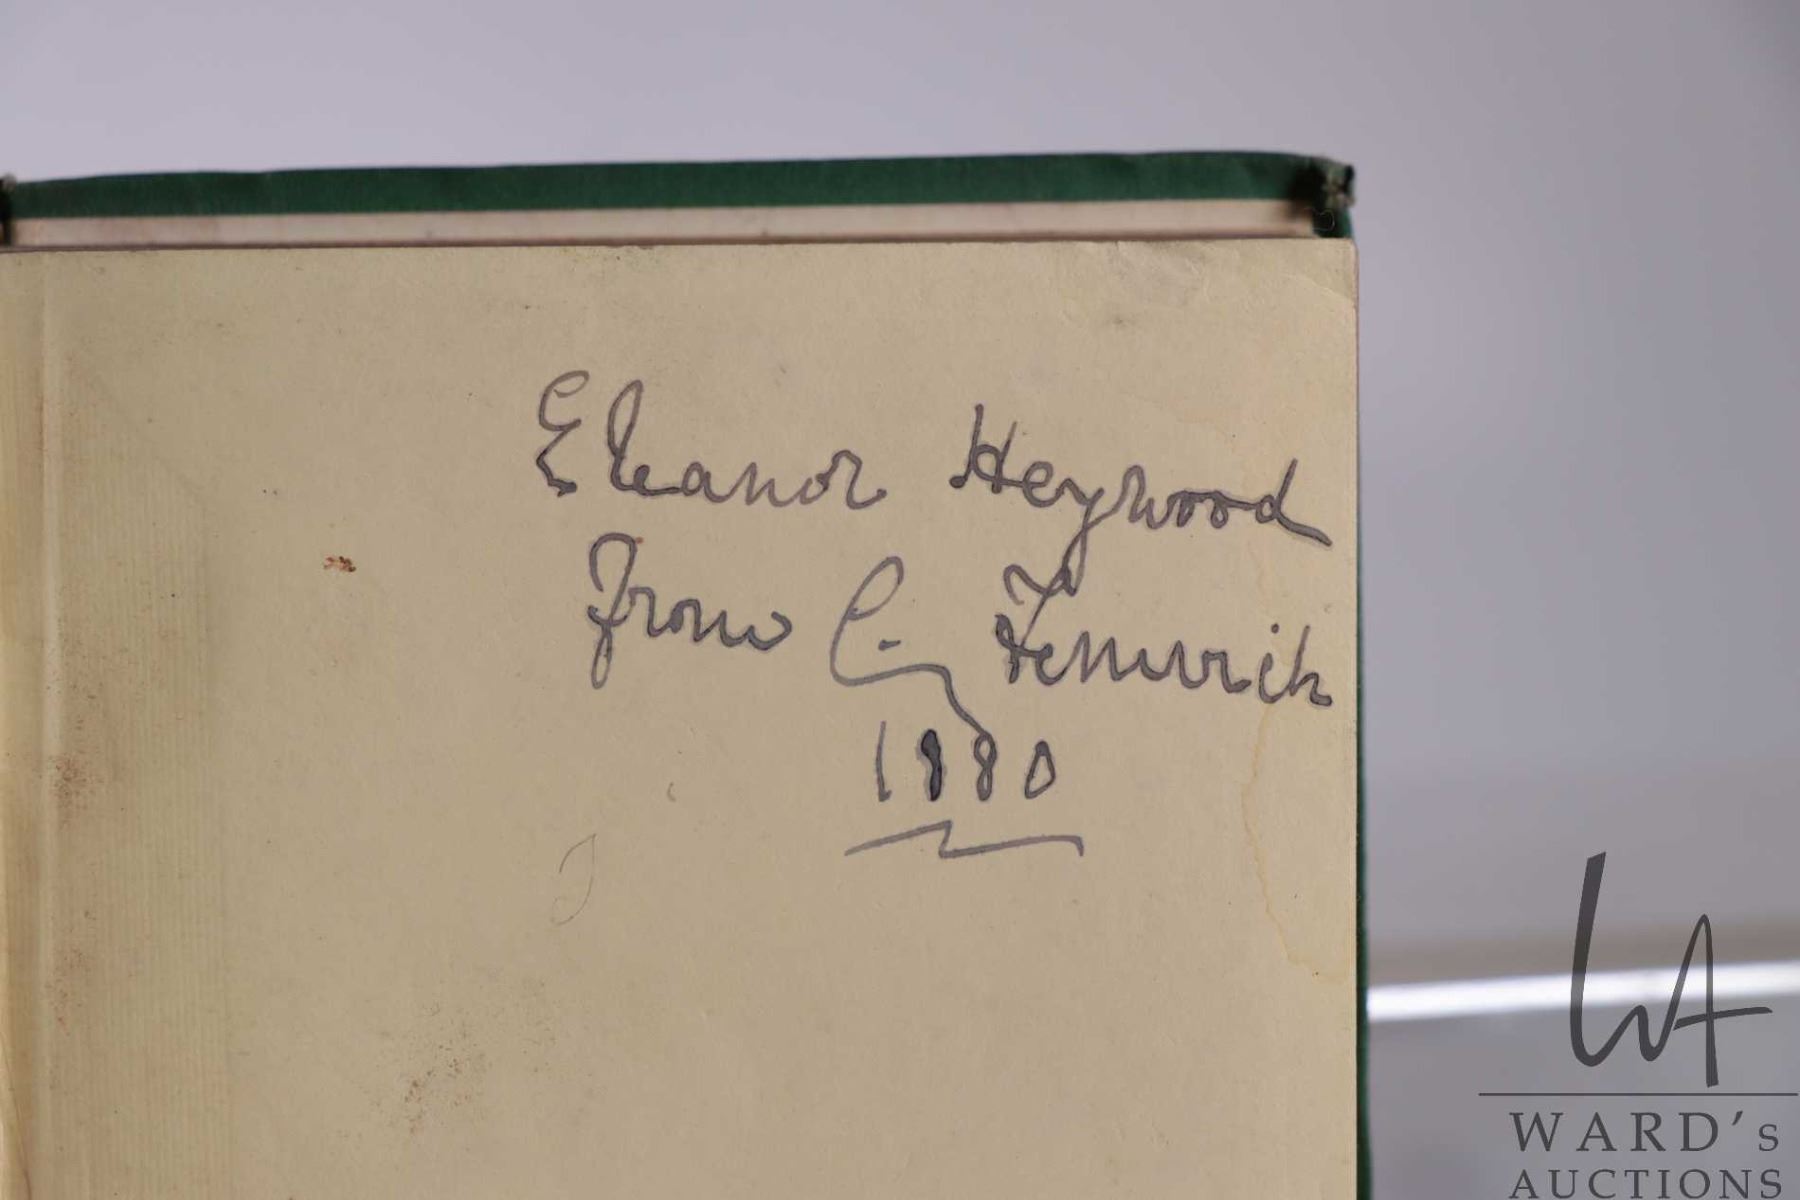 Eleanor Heywood
from C. Fenwick
1880
WARD's
AUCTIONS